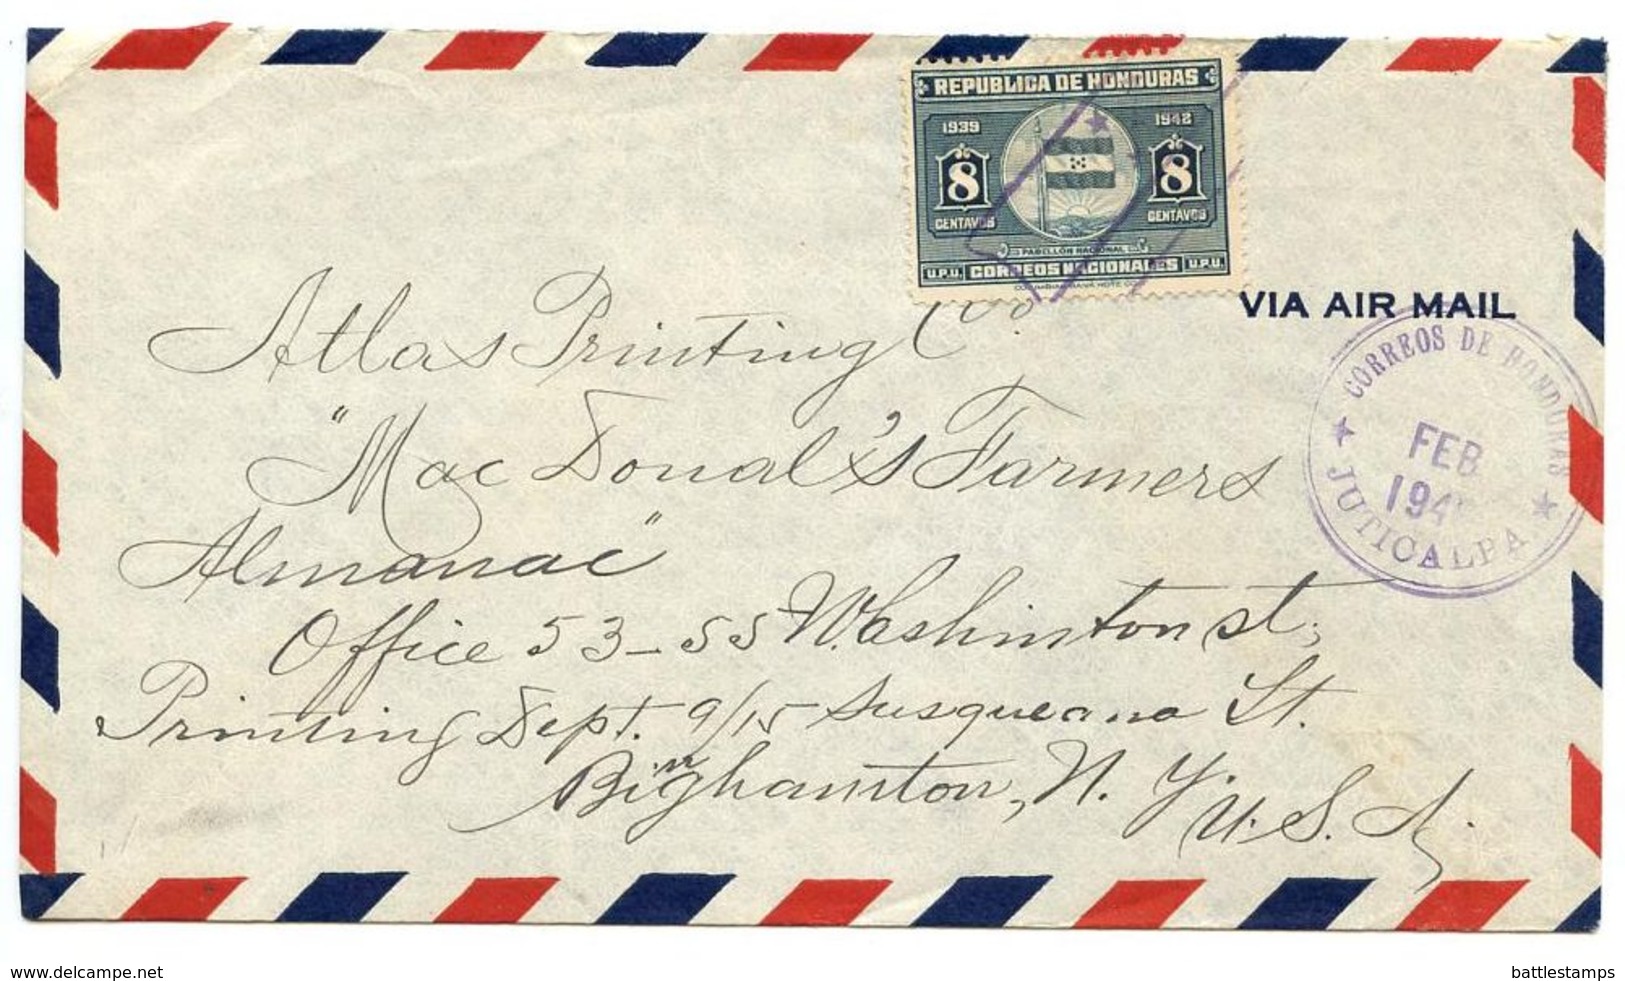 REPUBLICA DE HONDURAS
1939 1942
8 8
CENTAVOS CENTAVOS
PABELLÓN NACIONAL
U.P.U. CORREOS NACIONALES U.P.U.
COLUMBIAN BANK NOTE CO.
VIA AIR MAIL
CORREOS DE HONDURAS
FEB
JUTICALPA
Atlas Printing Co.
"Mac Donal's Farmers
Almanac"
Office 53-55 Washinton st,
Printing Dept. 9/15 Susqueana St.
Binghamton, N. Y.
U. S. A.
www.delcampe.net
battlestamps